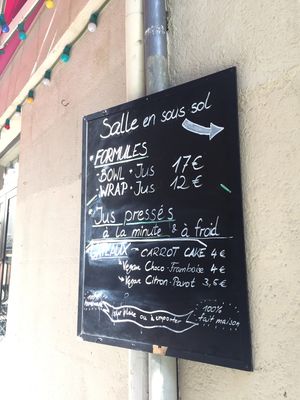 Salle en sous sol
FORMULES
BOWL • Jus 17€
WRAP • Jus 12€
Jus pressés
à la minute & à froid
GATEAUX CARROT CAKE 4€
Vegan Choco-Framboise 4€
Vegan Citron-Pavot 3,5€
100%
sur place ou à emporter
100%
fait maison